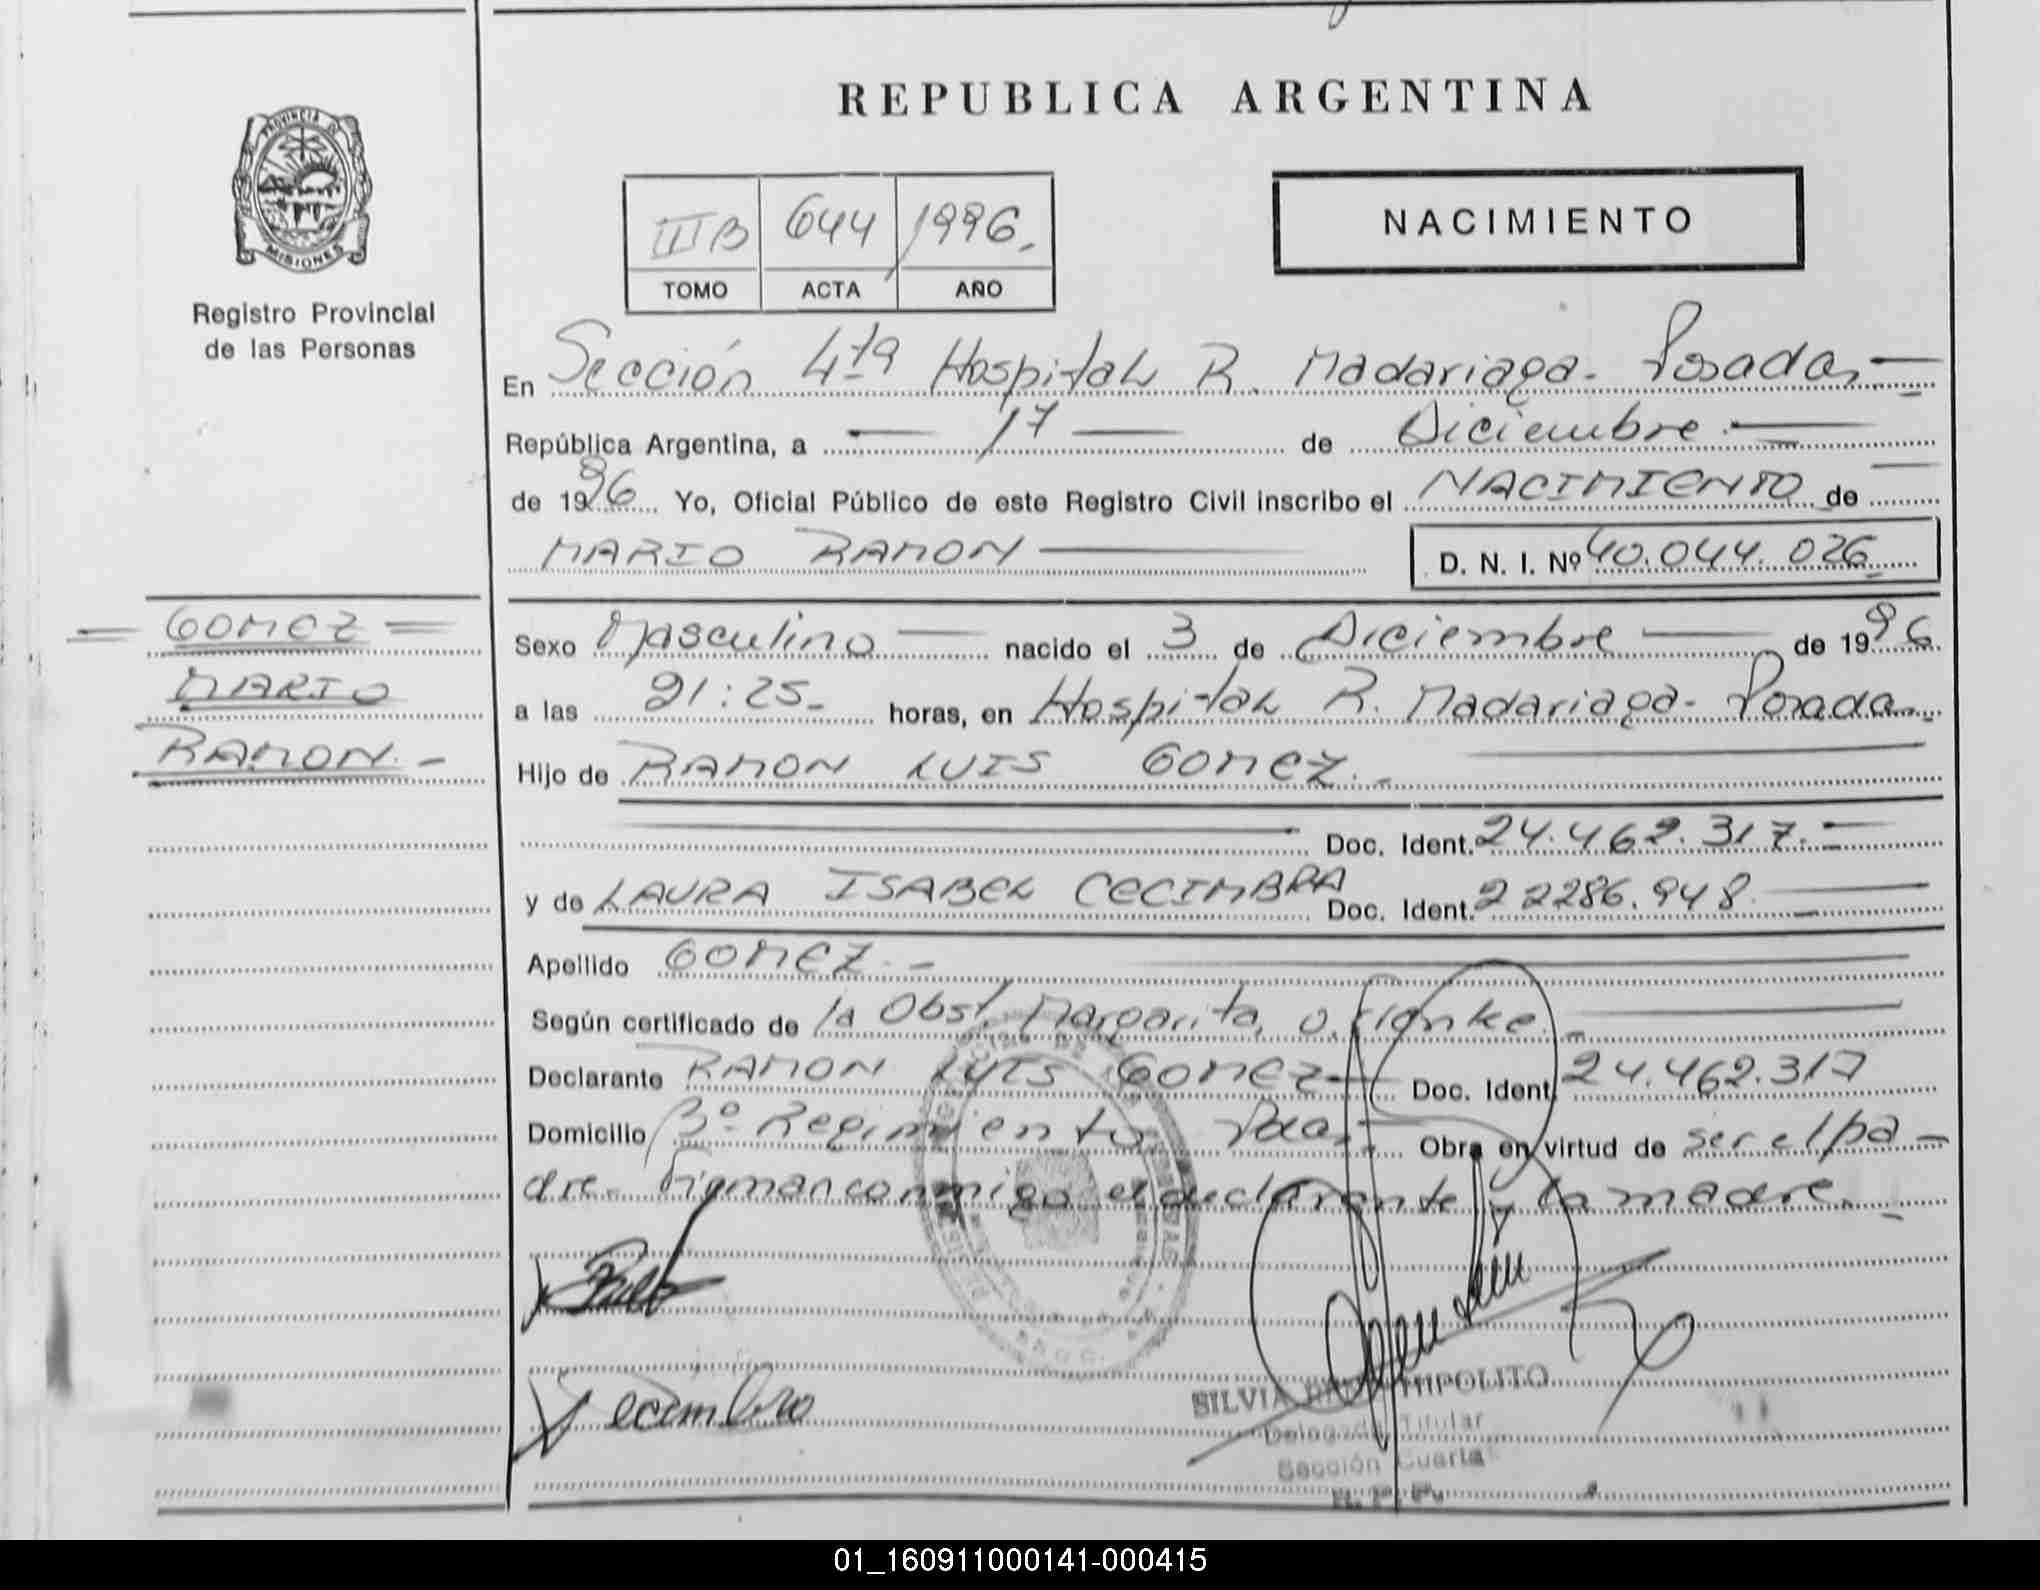 REPUBLICA ARGENTINA
PROVINCIA DE MISIONES
Registro Provincial
de las Personas
III B 644 1996.
TOMO ACTA AÑO
NACIMIENTO
En Sección 4ta Hospital R. Madariaga - Posadas
República Argentina, a 17 de Diciembre
de 1996 Yo, Oficial Público de este Registro Civil inscribo el NACIMIENTO de
MARIO RAMON D. N. I. Nº 40.044.026
GOMEZ
MARIO
RAMON.-
Sexo Masculino nacido el 3 de Diciembre de 1996
a las 21:25- horas, en Hospital R. Madariaga - Posadas
Hijo de RAMON LUIS GOMEZ.-
Doc. Ident. 24.462.317.-
y de LAURA ISABEL CECIMBRA Doc. Ident. 22286.948
Apellido GOMEZ.-
Según certificado de la Obst. Margarita
Declarante RAMON LUIS GOMEZ Doc. Ident. 24.462.317
Domicilio 3º Regimiento Pdas. Obra en virtud de ser el pa-
dre. Firman conmigo el declarante y la madre.-
SILVIA HIPOLITO
Delegada Titular
Sección Cuarta
R. P. P.
01_160911000141-000415